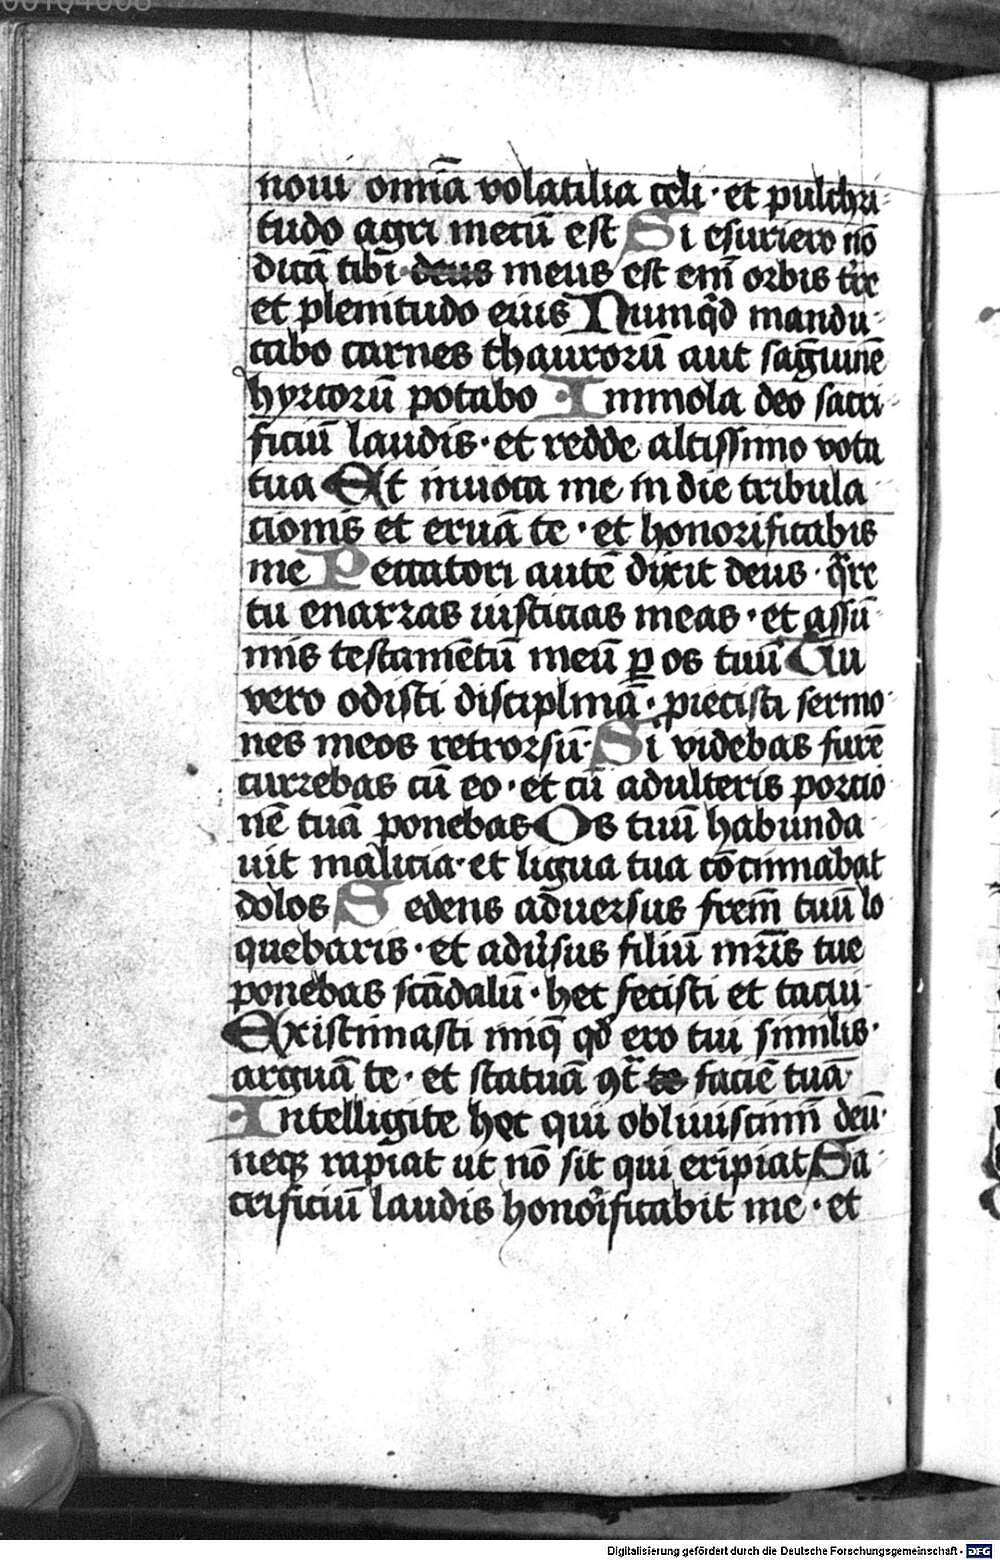 noui omīa volatilia celi · et pulchri-
tudo agri mecū est Si esuriero nō
dicā tibi deus meus est eīm orbis t̄re
et plenitudo eius Numq̄d mandu-
cabo carnes thaurorū aut saḡuinē
hyrcorū potabo Immola deo sacri-
ficiū laudis · et redde altissimo vota
tua Et inuoca me in die tribula-
cionis et eruā te · et honorificabis
me Peccatori autē dixit deus · q̄re
tu enarras iusticias meas · et assū-
mis testamētū meū ꝑ os tuū Tu
vero odisti disciplinā · proiecisti sermo-
nes meos retrorsū · Si videbas furē
currebas cū eo · et cū adulteris porcio-
nē tuā ponebas Os tuū habunda-
uit malicia · et ligua tua cōcinnabat
dolos Sedens aduersus frēm tuū lo
quebaris · et adūsus filiū mr̄is tue
ponebas scādalū · hec fecisti et tacui
Existimasti iniq̄ qd̄ ero tui similis ·
arguā te · et statuā ꝯt̄ te faciē tuā
Intelligite hec qui obliuiscimī deū ·
neqꝫ rapiat ut nō sit qui eripiat Sa-
crificiū laudis honorificabit me · et
Digitalisierung gefördert durch die Deutsche Forschungsgemeinschaft - DFG